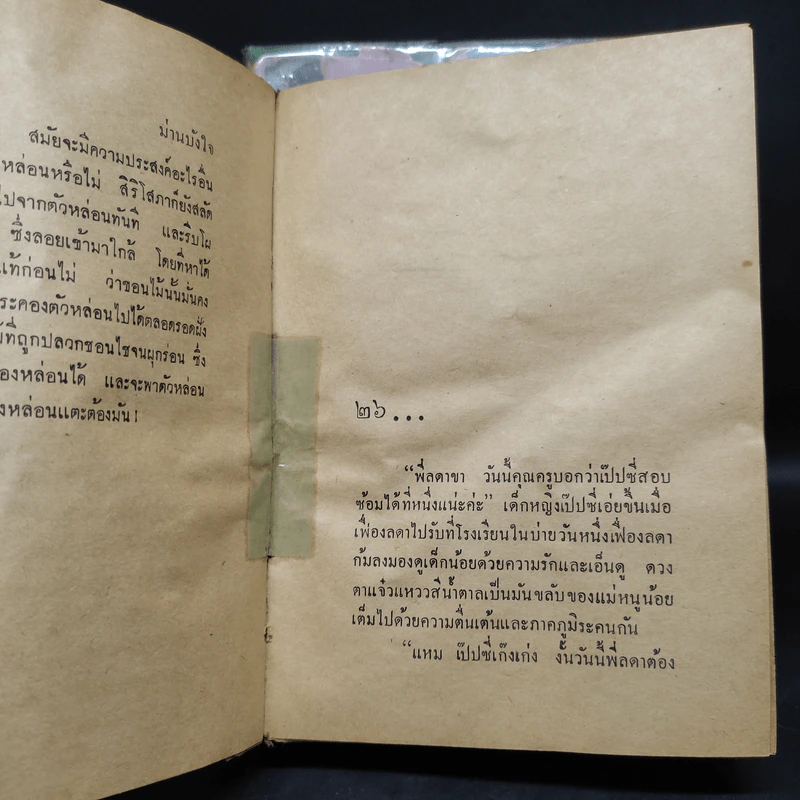 ม่านบังใจ
สมัยจะมีความประสงค์อะไรอื่น
หล่อนหรือไม่ สิริโสภาก็ยังสลัด
ไปจากตัวหล่อนทันที และรีบโผ
ซึ่งลอยเข้ามาใกล้ โดยที่หาได้
แท้ก่อนไม่ ว่าขอนไม้นั้นมั่นคง
ระคองตัวหล่อนไปได้ตลอดรอดฝั่ง
ที่ถูกปลวกชอนไชจนผุกร่อน ซึ่ง
องหล่อนได้ และจะพาตัวหล่อน
งหล่อนแตะต้องมัน!
๒๖...
“พี่ลดาขา วันนี้คุณครูบอกว่าเป๊ปซี่สอบ
ซ้อมได้ที่หนึ่งแน่ะค่ะ” เด็กหญิงเป๊ปซี่เอ่ยขึ้นเมื่อ
เฟื่องลดาไปรับที่โรงเรียนในบ่ายวันหนึ่งเฟื่องลดา
ก้มลงมองดูเด็กน้อยด้วยความรักและเอ็นดู ดวง
ตาแจ๋วแหววสีน้ำตาลเป็นมันขลับของแม่หนูน้อย
เต็มไปด้วยความตื่นเต้นและภาคภูมิระคนกัน
“แหม เป๊ปซี่เก๊งเก่ง งั้นวันนี้พี่ลดาต้อง